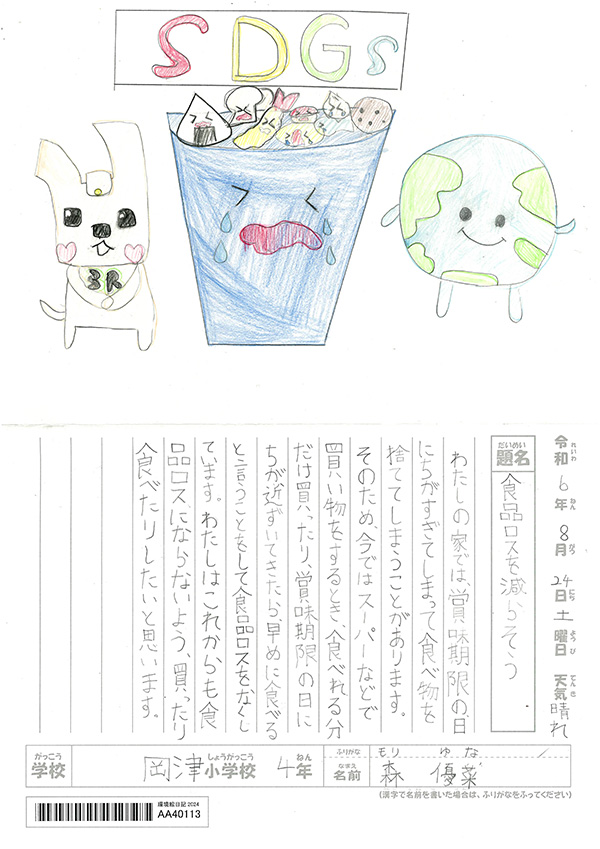 SDGs
3R
令和6年8月24日土曜日 天気晴れ
れいわ ねん がつ にち ようび てんき
だいめい
題名 食品ロスを減らそう
わたしの家では、賞味期限の日
にちがすぎてしまって食べ物を
捨ててしまうことがあります。
そのため、今ではスーパーなどで
買い物をするとき、食べれる分
だけ買ったり、賞味期限の日に
ちが近ずいてきたら、早めに食べる
と言うことをして食品ロスをなくし
ています。わたしはこれからも食
品ロスにならないよう、買ったり
食べたりしたいと思います。
がっこう しょうがっこう ねん
学校 岡津小学校 4年
ふりがな モリ ゆな
なまえ
名前 森 優菜
(漢字で名前を書いた場合は、ふりがなをふってください)
環境絵日記2024
AA40113